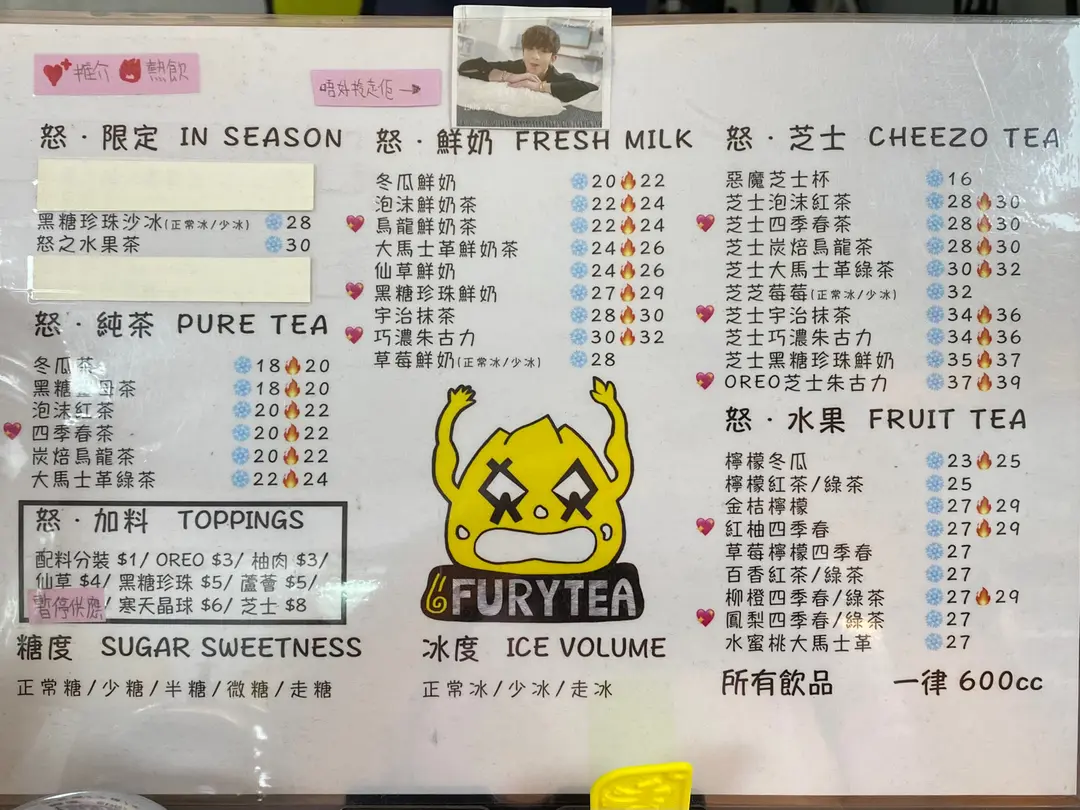 推介 熱飲
唔好拎走佢 →
怒 · 限定 IN SEASON
黑糖珍珠沙冰(正常冰/少冰) 28
怒之水果茶 30
怒 · 純茶 PURE TEA
冬瓜茶 18 20
黑糖 母茶 18 20
泡沫紅茶 20 22
四季春茶 20 22
炭焙烏龍茶 20 22
大馬士革綠茶 22 24
怒 · 加料 TOPPINGS
配料分裝 $1/ OREO $3/ 柚肉 $3/
仙草 $4/ 黑糖珍珠 $5/ 蘆薈 $5/
暫停供應 / 寒天晶球 $6/ 芝士 $8
糖度 SUGAR SWEETNESS
正常糖/少糖/半糖/微糖/走糖
怒 · 鮮奶 FRESH MILK
冬瓜鮮奶 20 22
泡沫鮮奶茶 22 24
烏龍鮮奶茶 22 24
大馬士革鮮奶茶 24 26
仙草鮮奶 24 26
黑糖珍珠鮮奶 27 29
宇治抹茶 28 30
巧濃朱古力 30 32
草莓鮮奶(正常冰/少冰) 28
FURYTEA
冰度 ICE VOLUME
正常冰/少冰/走冰
怒 · 芝士 CHEEZO TEA
惡魔芝士杯 16
芝士泡沫紅茶 28 30
芝士四季春茶 28 30
芝士炭焙烏龍茶 28 30
芝士大馬士革綠茶 30 32
芝芝莓莓(正常冰/少冰) 32
芝士宇治抹茶 34 36
芝士巧濃朱古力 34 36
芝士黑糖珍珠鮮奶 35 37
OREO芝士朱古力 37 39
怒 · 水果 FRUIT TEA
檸檬冬瓜 23 25
檸檬紅茶/綠茶 25
金桔檸檬 27 29
紅柚四季春 27 29
草莓檸檬四季春 27
百香紅茶/綠茶 27
柳橙四季春/綠茶 27 29
鳳梨四季春/綠茶 27
水蜜桃大馬士革 27
所有飲品 一律 600cc